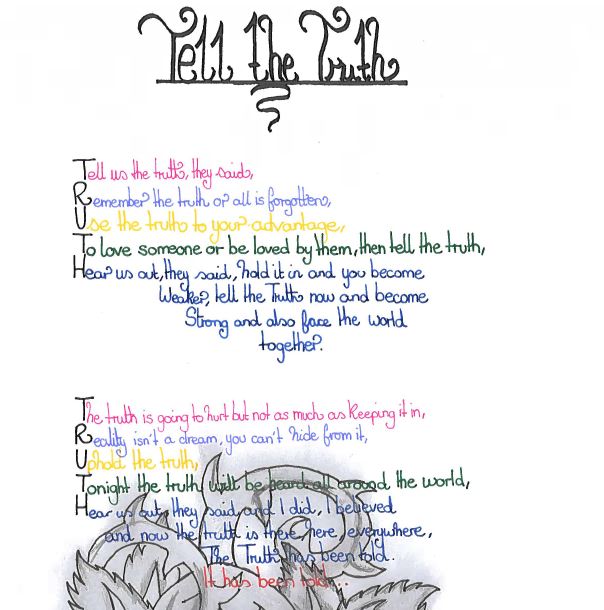 Tell the Truth
Tell us the truth, they said,
Remember the truth or all is forgotten,
Use the truth to your advantage,
To love someone or be loved by them, then tell the truth,
Hear us out, they said, hold it in and you become
Weaker, tell the Truth now and become
Strong and also face the world
together.
The truth is going to hurt but not as much as Keeping it in,
Reality isn't a dream, you can't hide from it,
Uphold the truth,
Tonight the truth will be heard all around the world,
Hear us out, they said, and I did, I believed
and now the truth is there, here, everywhere,
The Truth has been told.
It has been told...